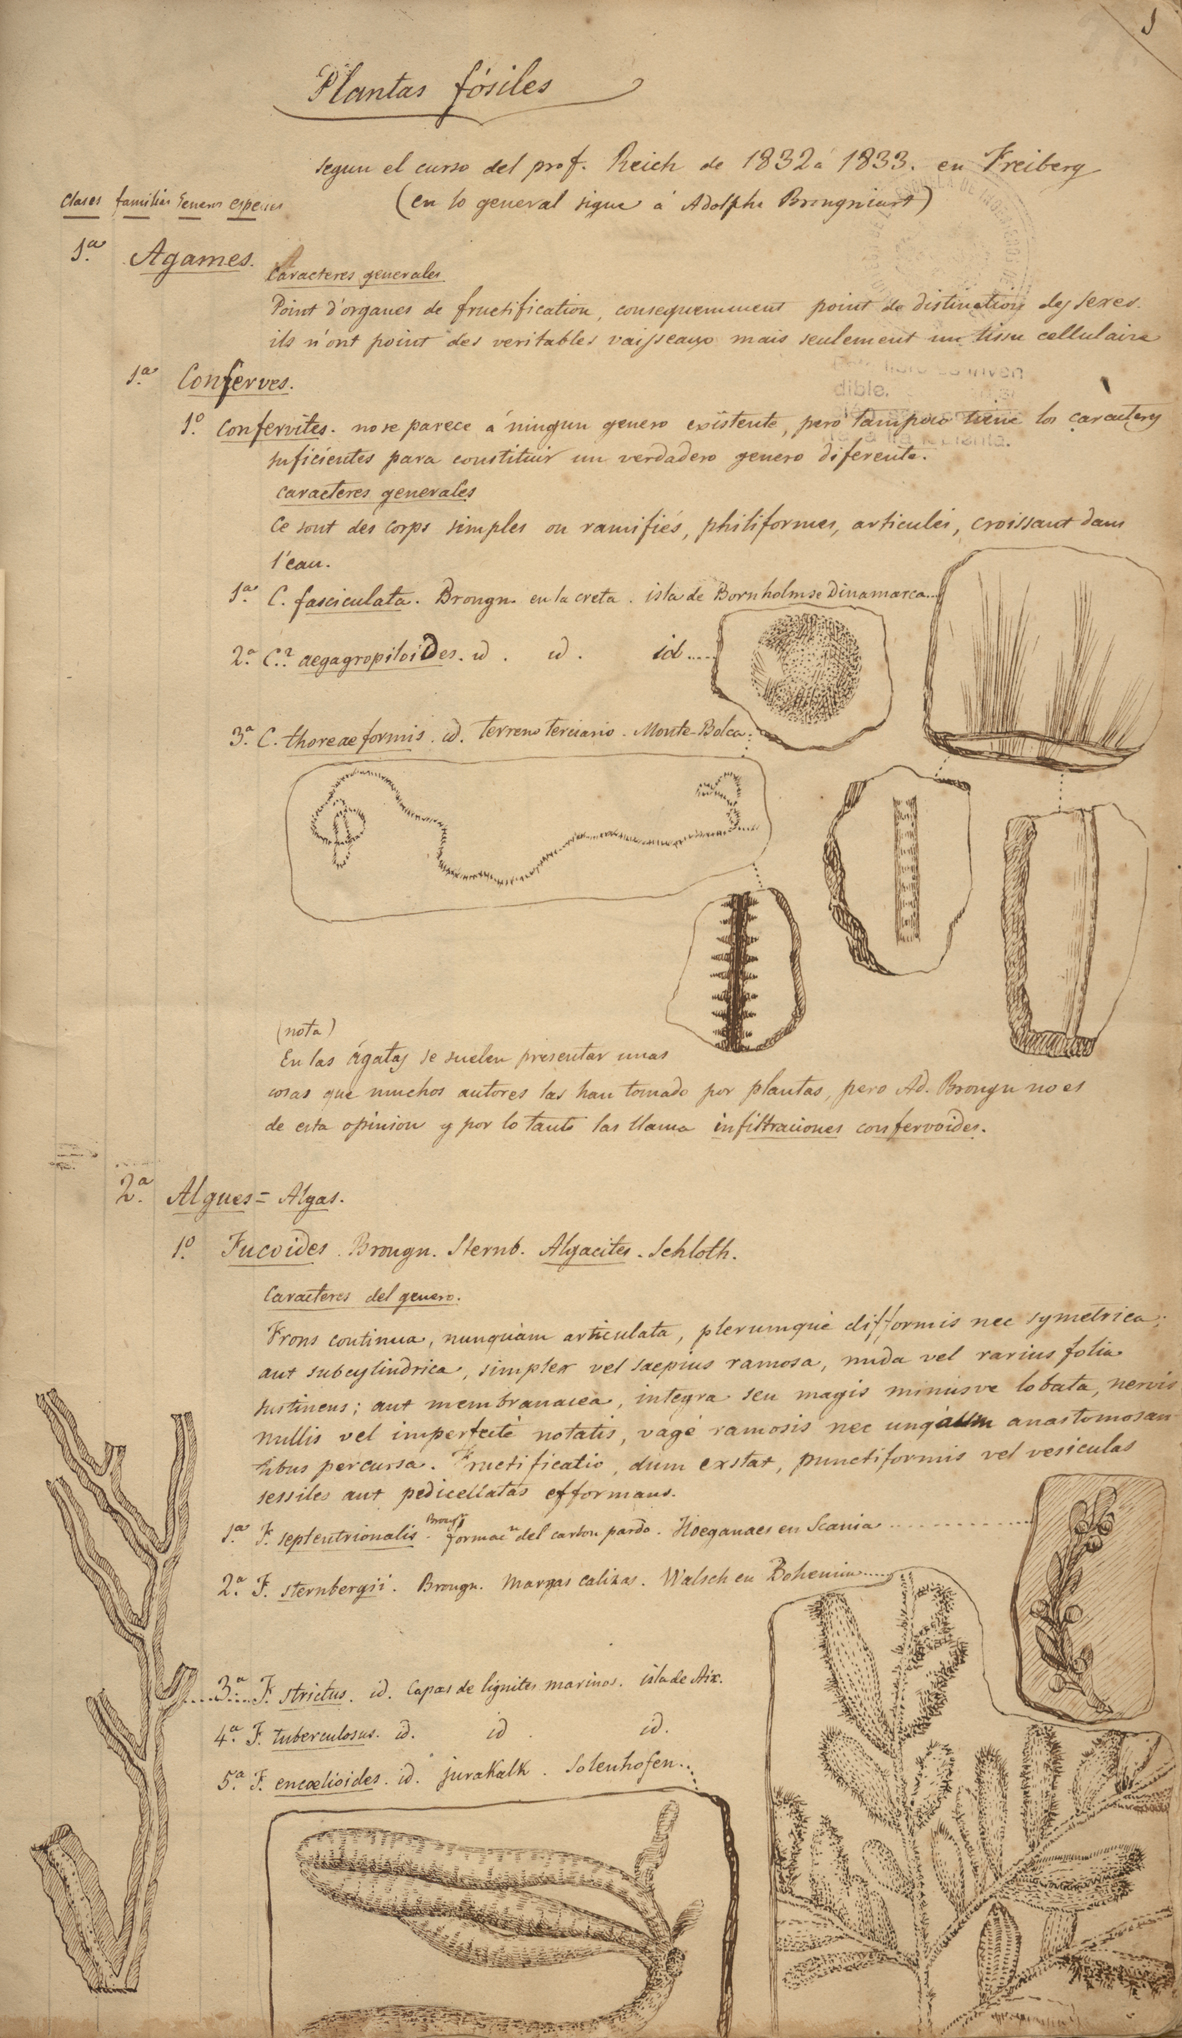 1
Plantas fósiles
segun el curso del prof. Reich de 1832 á 1833. en Freiberg
(en lo general sigue á Adolphe Brongniart)
clases familias generos especies
1ª Agames.
Caracteres generales
Point d'organes de fructification, consequemment point de distinction des sexes.
ils n'ont point des veritables vaisseaux mais seulement un tissu cellulaire
1ª Conferves.
1º Confervites. no se parece á ningun genero existente, pero tampoco tiene los caracteres
suficientes para constituir un verdadero genero diferente.
caracteres generales
Ce sont des corps simples ou ramifiés, philiformes, articulés, croissant dans
l'eau.
1ª C. fasciculata. Brongn. en la creta. isla de Bornholm de Dinamarca...
2ª C. aegagropiloides. id. id. id.....
3ª C. thoreaeformis. id. terreno terciario. Monte-Bolca.
(nota)
En las ágatas se suelen presentar unas
cosas que muchos autores las han tomado por plantas, pero Ad. Brongn no es
de esta opinion y por lo tanto las llama infiltraciones confervoides.
2ª Algues = Algas.
1º Fucoides. Brongn. Sternb. Algacites. Schloth.
Caracteres del genero.
Frons continua, nunquam articulata, plerumque difformis nec symetrica;
aut subcylindrica, simplex vel saepius ramosa, nuda vel rarius folia
sustinens; aut membranacea, integra seu magis minusve lobata, nervis
nullis vel imperfecté notatis, vagé ramosis nec unquam anastomosan-
tibus percursa. Fructificatio, dum exstat, punctiformis vel vesiculas
sessiles aut pedicellatas efformans.
1ª F. septentrionalis. Brong. formacn del carbon pardo. Hoeganaes en Scania
2ª F. sternbergii. Brongn. Margas calizas. Walsch en Bohemia.....
3ª F. strictus. id. Capas de lignites marinos. isla de Aix.
4ª F. tuberculosus. id. id. id.
5ª F. encœlioides. id. jurakalk. Solenhofen..